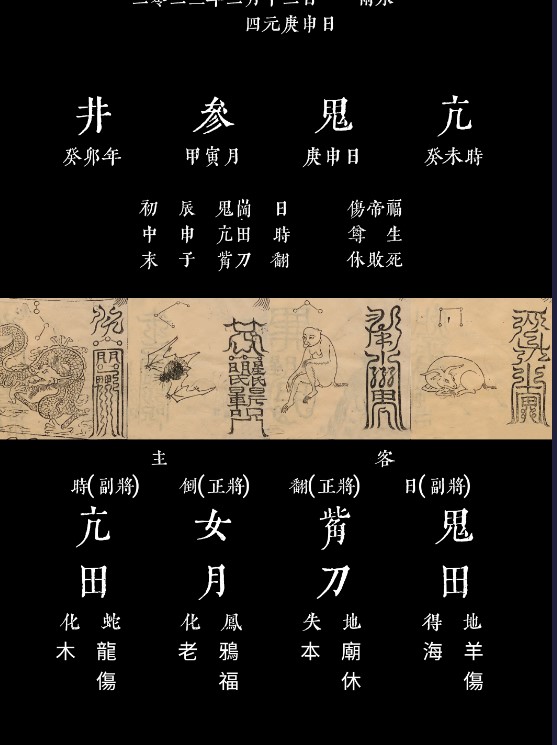 四元庚申日
井 參 鬼 亢
癸卯年 甲寅月 庚申日 癸未時
初 辰 鬼 日 傷帝福
中 申 亢田 時 尊 生
末 子 觜刀 翻 休敗死
主 客
時(副將) 倒(正將) 翻(正將) 日(副將)
亢 女 觜 鬼
田 月 刀 田
化 蛇 化 鳳 失 地 得 地
木 龍 老 鴉 本 廟 海 羊
傷 福 休 傷